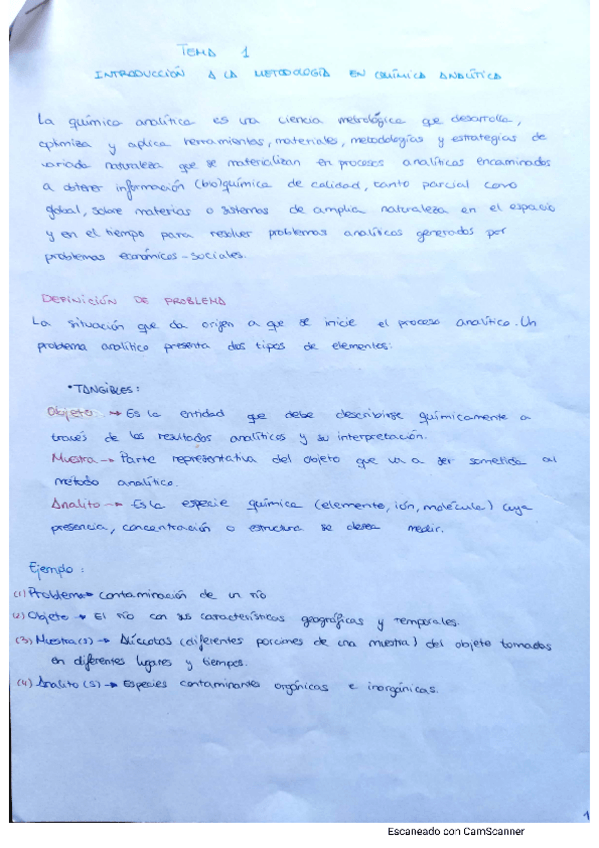 TEMA 1
INTRODUCCIÓN A LA METODOLOGÍA EN QUÍMICA ANALÍTICA
La química analítica es una ciencia metrológica que desarrolla,
optimiza y aplica herramientas, materiales, metodologías y estrategias de
variada naturaleza que se materializan en procesos analíticos encaminados
a obtener información (bio)química de calidad, tanto parcial como
global, sobre materias o sistemas de amplia naturaleza en el espacio
y en el tiempo para resolver problemas analíticos generados por
problemas económicos - sociales.
DEFINICIÓN DE PROBLEMA
La situación que da origen a que se inicie el proceso analítico. Un
problema analítico presenta dos tipos de elementos:
• TANGIBLES:
Objeto → Es la entidad que debe describirse químicamente a
través de los resultados analíticos y su interpretación.
Muestra → Parte representativa del objeto que va a ser sometida al
método analítico.
Analito → Es la especie química (elemento, ión, molécula) cuya
presencia, concentración o estructura se desea medir.
Ejemplo:
(1) Problema → contaminación de un río
(2) Objeto → El río con sus características geográficas y temporales.
(3) Muestra(s) → Alícuotas (diferentes porciones de una muestra) del objeto tomados
en diferentes lugares y tiempos.
(4) Analito(s) → Especies contaminantes orgánicas e inorgánicas.
1
Escaneado con CamScanner